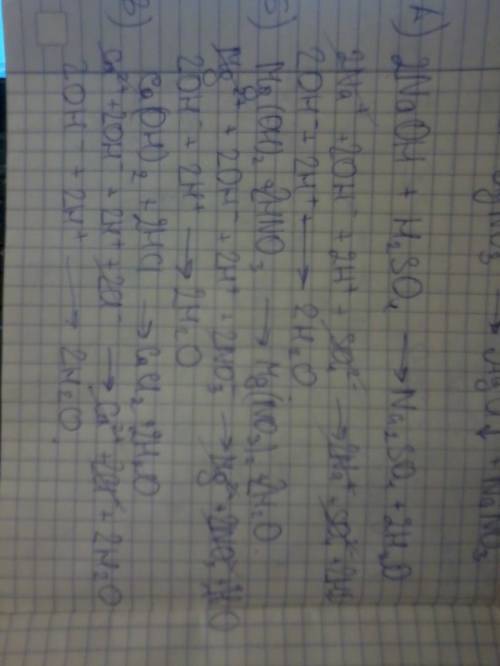 → ↓ + NaNO₃
А) 2NaOH + H₂SO₄ → Na₂SO₄ + 2H₂O
2Na⁺ + 2OH⁻ + 2H⁺ + SO₄²⁻ → 2Na⁺ + SO₄²⁻ + 2H₂O
2OH⁻ + 2H⁺ → 2H₂O
Б) Mg(OH)₂ + 2HNO₃ → Mg(NO₃)₂ + 2H₂O
Mg²⁺ + 2OH⁻ + 2H⁺ + 2NO₃⁻ → Mg²⁺ + 2NO₃⁻ + 2H₂O
2OH⁻ + 2H⁺ → 2H₂O
В) Ca(OH)₂ + 2HCl → CaCl₂ + 2H₂O
Ca²⁺ + 2OH⁻ + 2H⁺ + 2Cl⁻ → Ca²⁺ + 2Cl⁻ + 2H₂O
2OH⁻ + 2H⁺ → 2H₂O